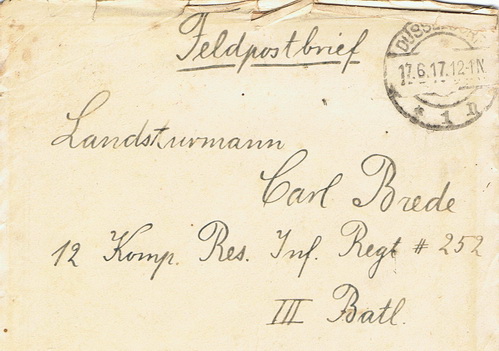 Feldpostbrief
17.6.17.12-1N.
* 1 n
Landsturmann
Carl Brede
12 Komp. Res. Inf. Regt # 252
III Batl.